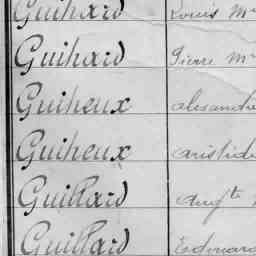 Guihard Louis M
Guihard Pierre M
Guiheux
Guiheux aristide
Guillard Aug^te
Guillard Edouard